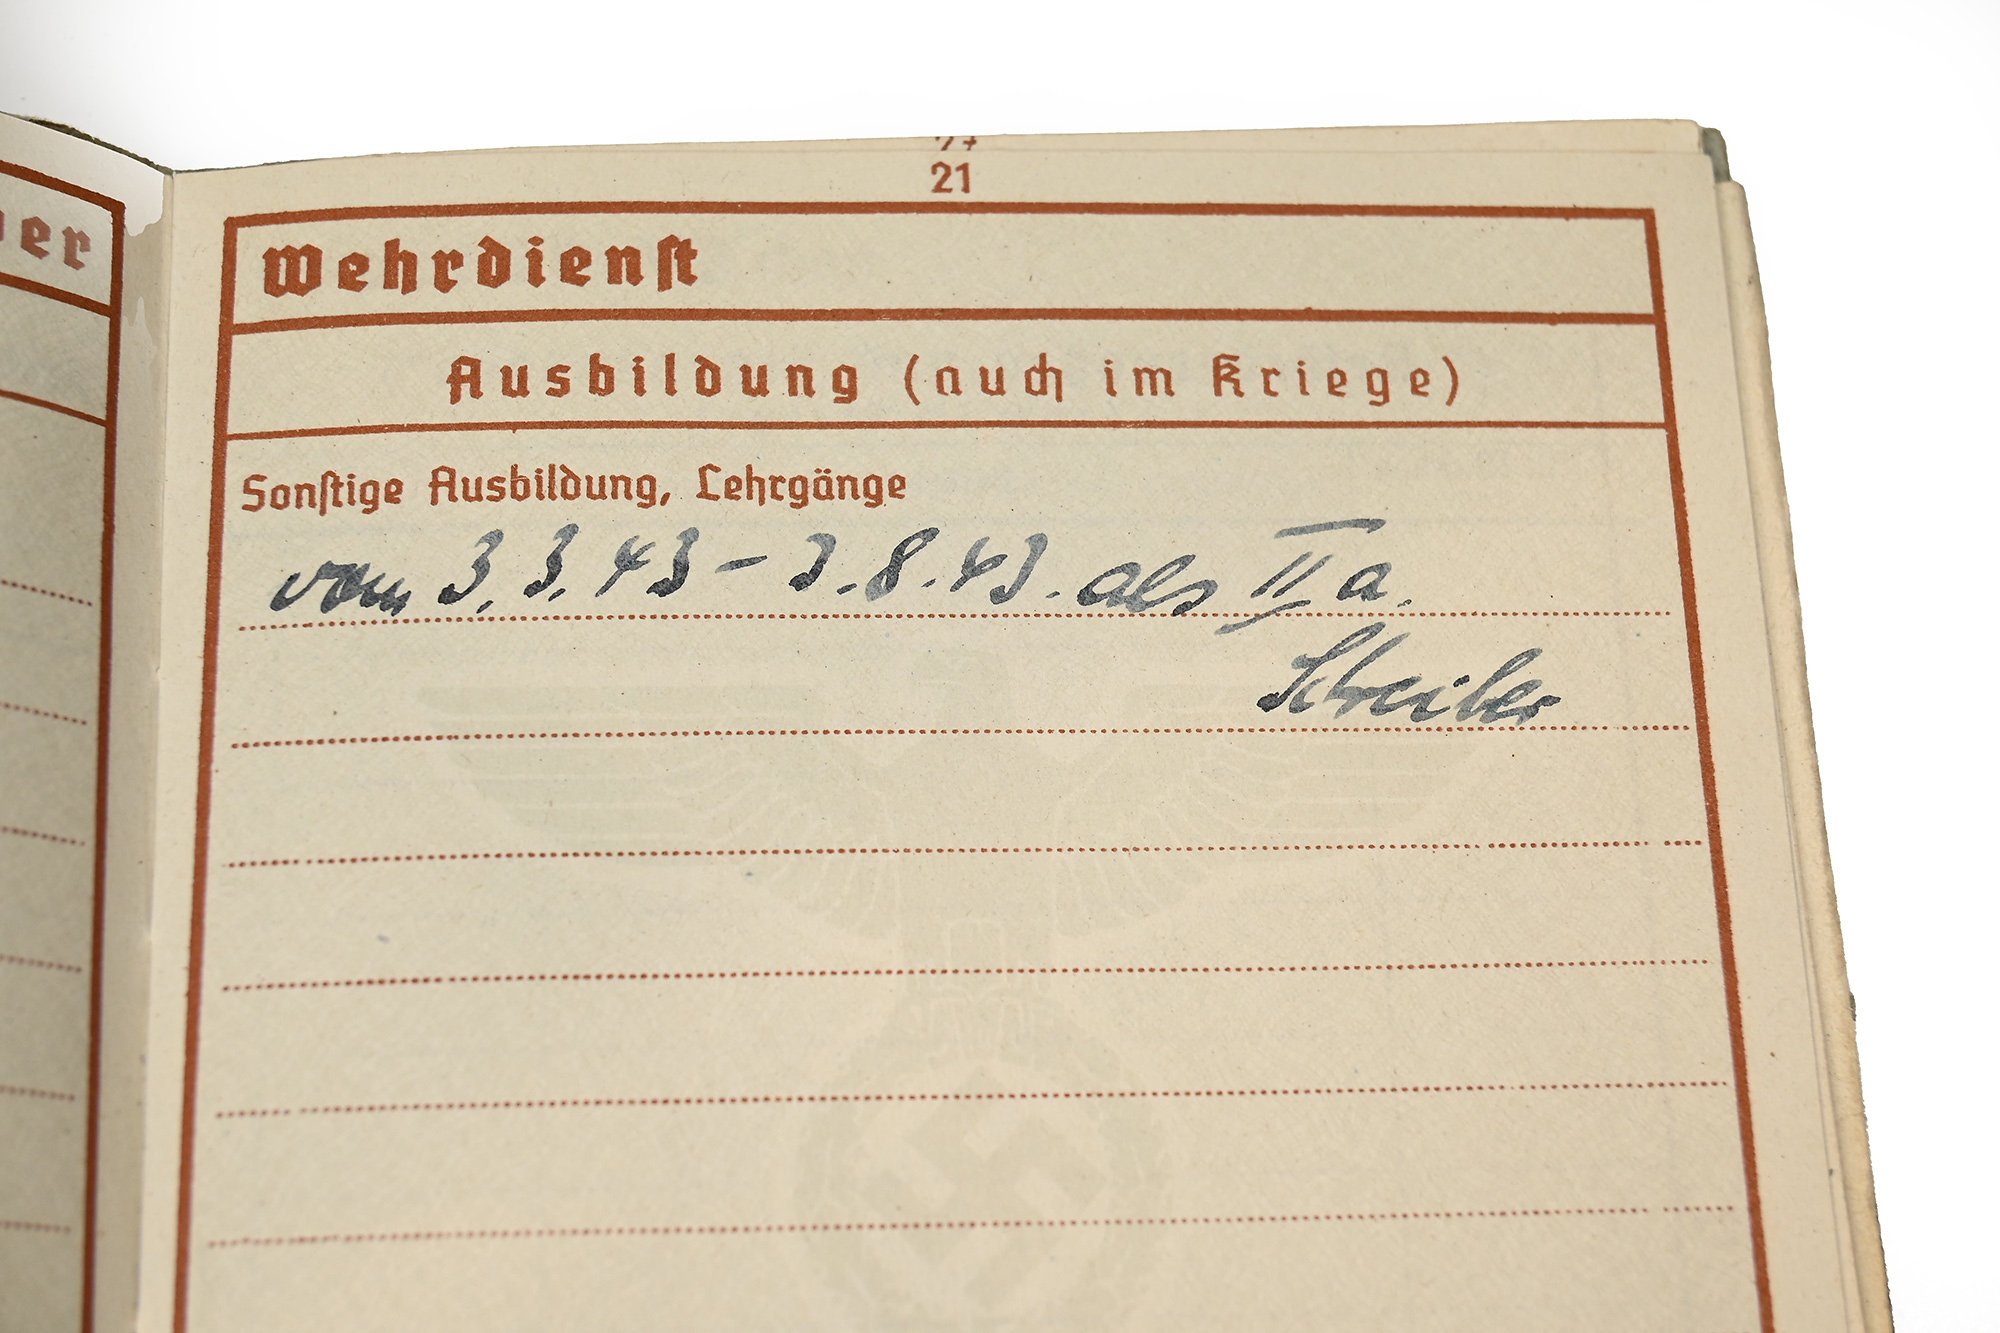 21
Wehrdienst
Ausbildung (auch im Kriege)
Sonstige Ausbildung, Lehrgänge
vom 3.3.43 – 3.8.43. als IIa.
Schreiber